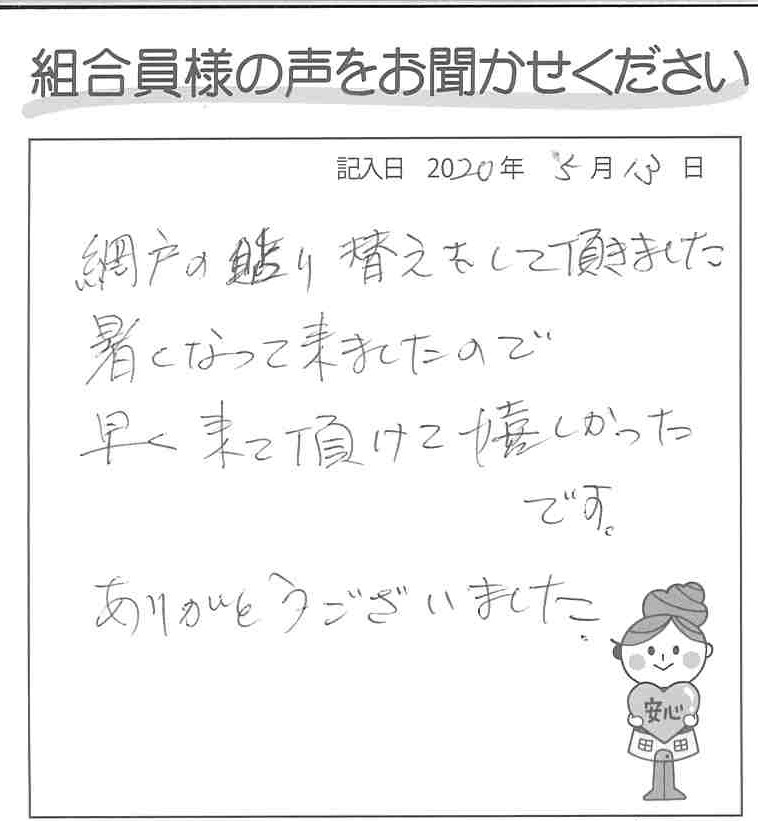 組合員様の声をお聞かせください
記入日 2020年 5月13日
網戸の貼り替えをして頂きました
暑くなって来ましたので
早く来て頂けて嬉しかった
です。
ありがとうございました。
安心